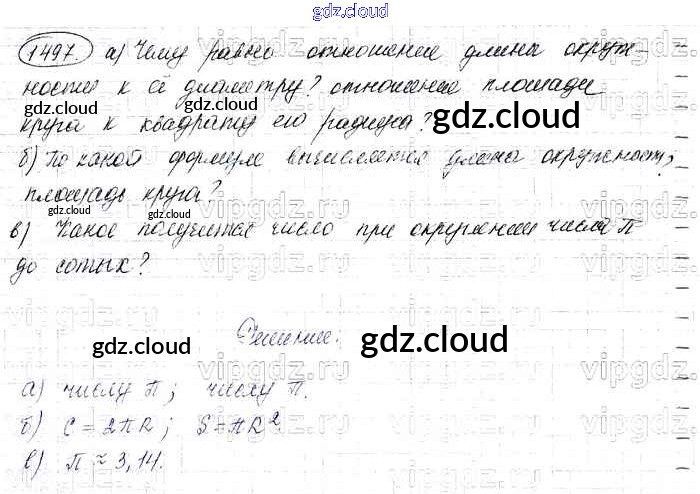 gdz.cloud
1497. а) Чему равно отношение длины окруж-
ности к её диаметру? отношение площади
gdz.cloud gdz.cloud gdz.cloud
круга к квадрату его радиуса?
б) По какой формуле вычисляется длина окружности;
площадь круга?
gdz.cloud gdz.cloud
в) Какое получится число при округлении числа П
до сотых?
Решение:
gdz.cloud gdz.cloud gdz.cloud
а) числу П; числу П.
б) C = 2πR; S = πR²
в) П ≈ 3,14.
vipgdz.ru